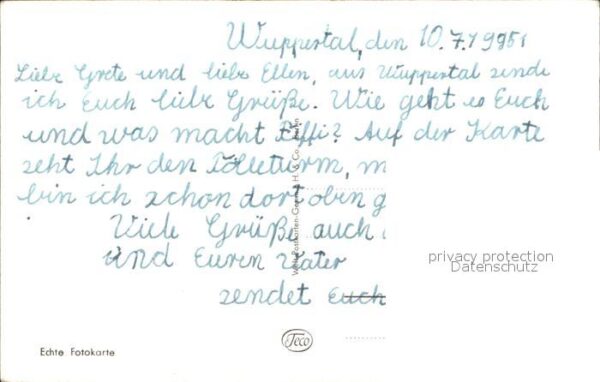 Wuppertal, den 10.7.19951
Liebe Grete und liebe Ellen, aus Wuppertal sende
ich Euch liebe Grüße. Wie geht es Euch
und was macht Piffi? Auf der Karte
seht Ihr den Tölleturm, m
bin ich schon dort oben g
Viele Grüße auch
und Euren Vater
sendet Euch
privacy protection
Datenschutz
Teco
Echte Fotokarte